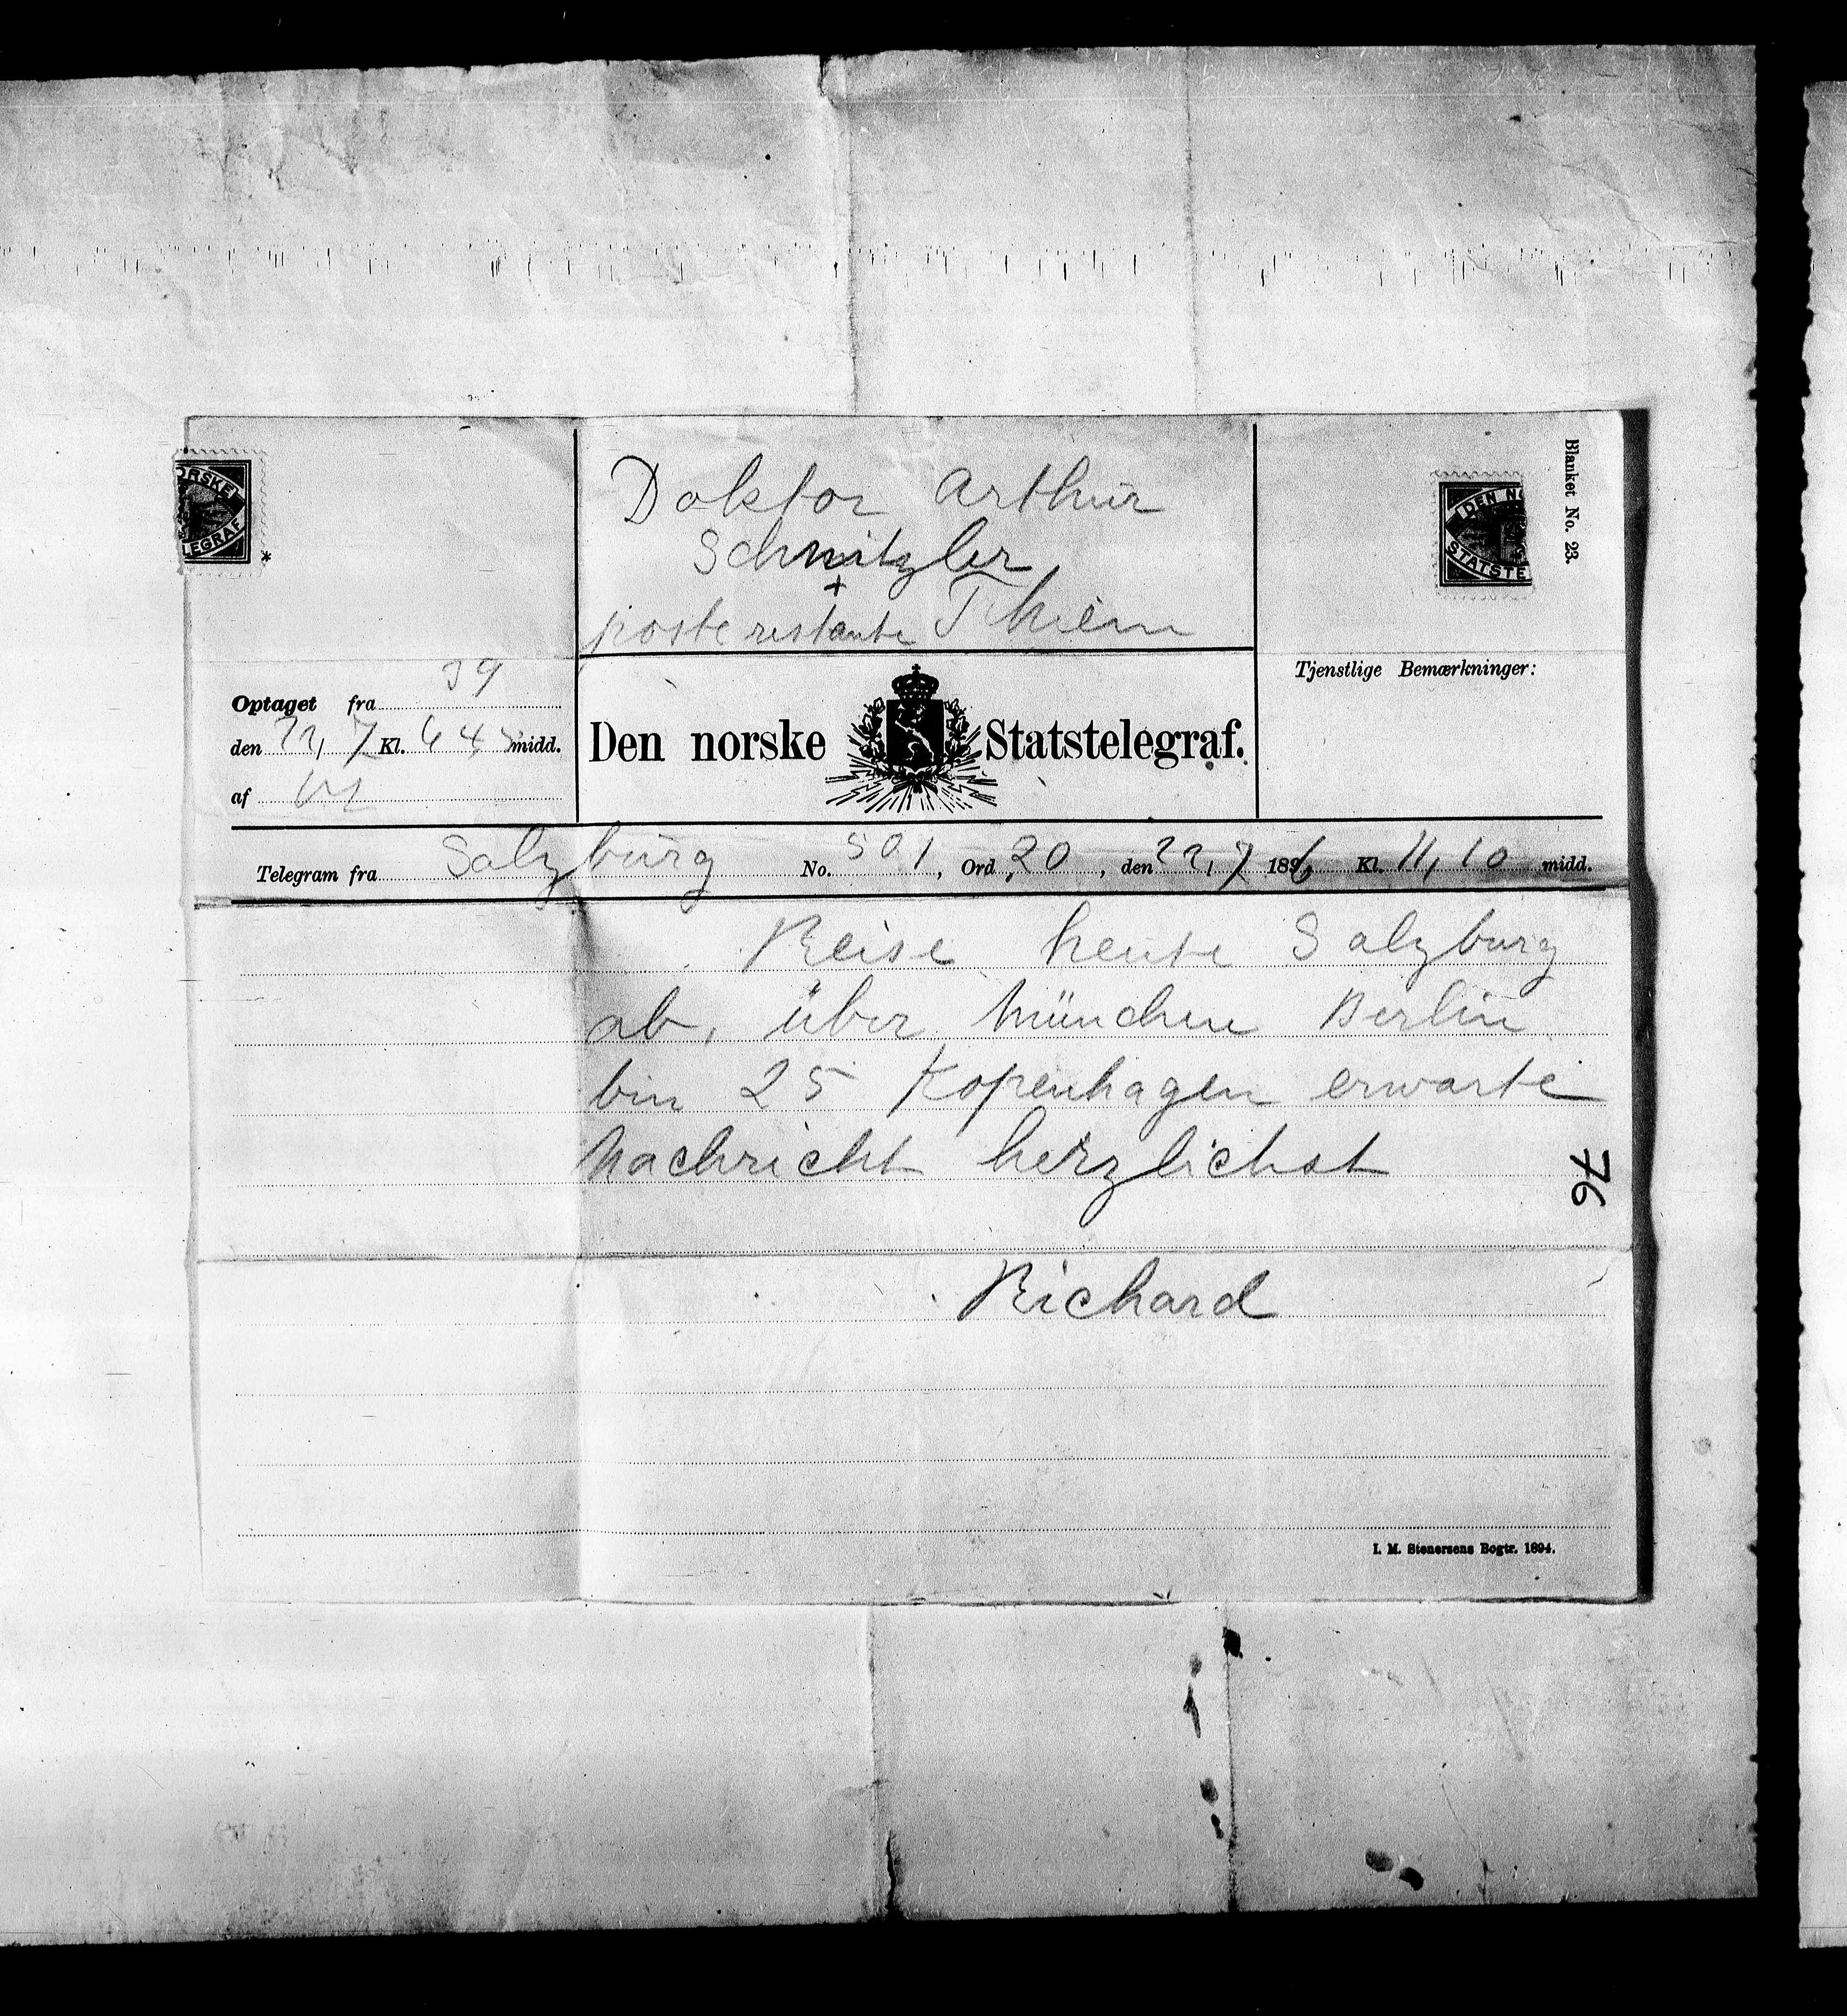 Blanket No. 23.
ORSKE
LEGRAF
*
DEN NO
STATSTE
Doktor Arthur
Schnitzler
+
poste restante Thiem
Optaget fra 39
den 22, 7 Kl. 6 45 midd.
af
Den norske Statstelegraf.
Tjenstlige Bemærkninger:
Telegram fra Salzburg No. 501, Ord 20, den 22, 7 1896 Kl. 11,10 midd.
Reise heute Salzburg
ab, über München Berlin
bin 25 Kopenhagen erwarte
Nachricht herzlichst
76
Richard
I. M. Stenersens Bogtr. 1894.